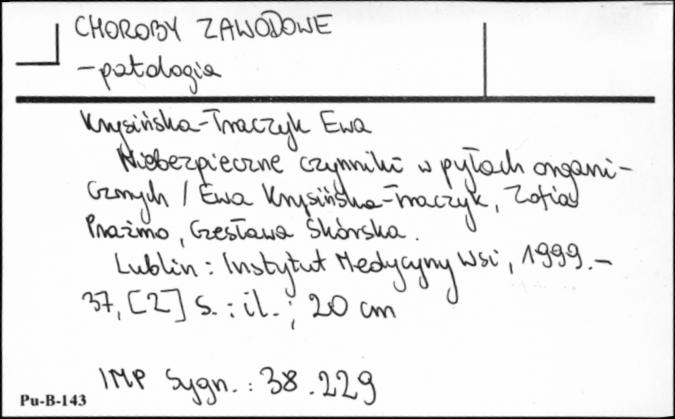 CHOROBY ZAWODOWE
-patologia
Krysińska-Traczyk Ewa
Niebezpieczne czynniki w pyłach organi-
cznych / Ewa Krysińska-Traczyk, Zofia
Prażmo, Czesława Skórska.
Lublin : Instytut Medycyny Wsi, 1999.-
37, [2] s. : il. ; 20 cm
IMP Sygn. : 38.229
Pu-B-143